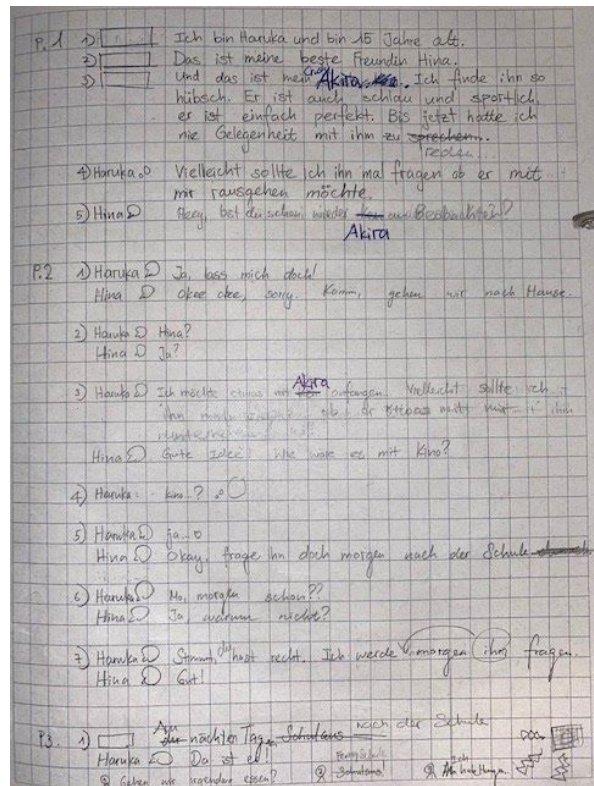 P.1 1) Ich bin Haruka und bin 15 Jahre alt.
2) Das ist meine beste Freundin Hina.
3) Und das ist mein Crush Akira. Ich finde ihn so
hübsch. Er ist auch schlau und sportlich,
er ist einfach perfekt. Bis jetzt hatte ich
nie Gelegenheit mit ihm zu sprechen.
reden...
4) Haruka Vielleicht sollte ich ihn mal fragen ob er mit
mir rausgehen möchte.
5) Hina Heey, bist du schon wieder am Beobachten?
Akira
P.2 1) Haruka Ja, lass mich doch!
Hina Okee okee, sorry. Komm, gehen wir nach Hause.
2) Haruka Hina?
Hina Ja?
3) Haruka Ich möchte etwas mit Akira anfangen. Vielleicht sollte ich
ihn mit
Hina Gute Idee! Wie wäre es mit Kino?
4) Haruka: Kino..?
5) Haruka ja..
Hina Okay, frage ihn doch morgen nach der Schule
6) Haruka morgen schon??
Hina Ja, warum nicht?
7) Haruka Stimmt, du hast recht. Ich werde morgen ihn fragen.
Hina Gut!
P3. 1) Am nächten Tag, nach der Schule
Haruka Da ist er!
Gehen wir irgendwo essen?